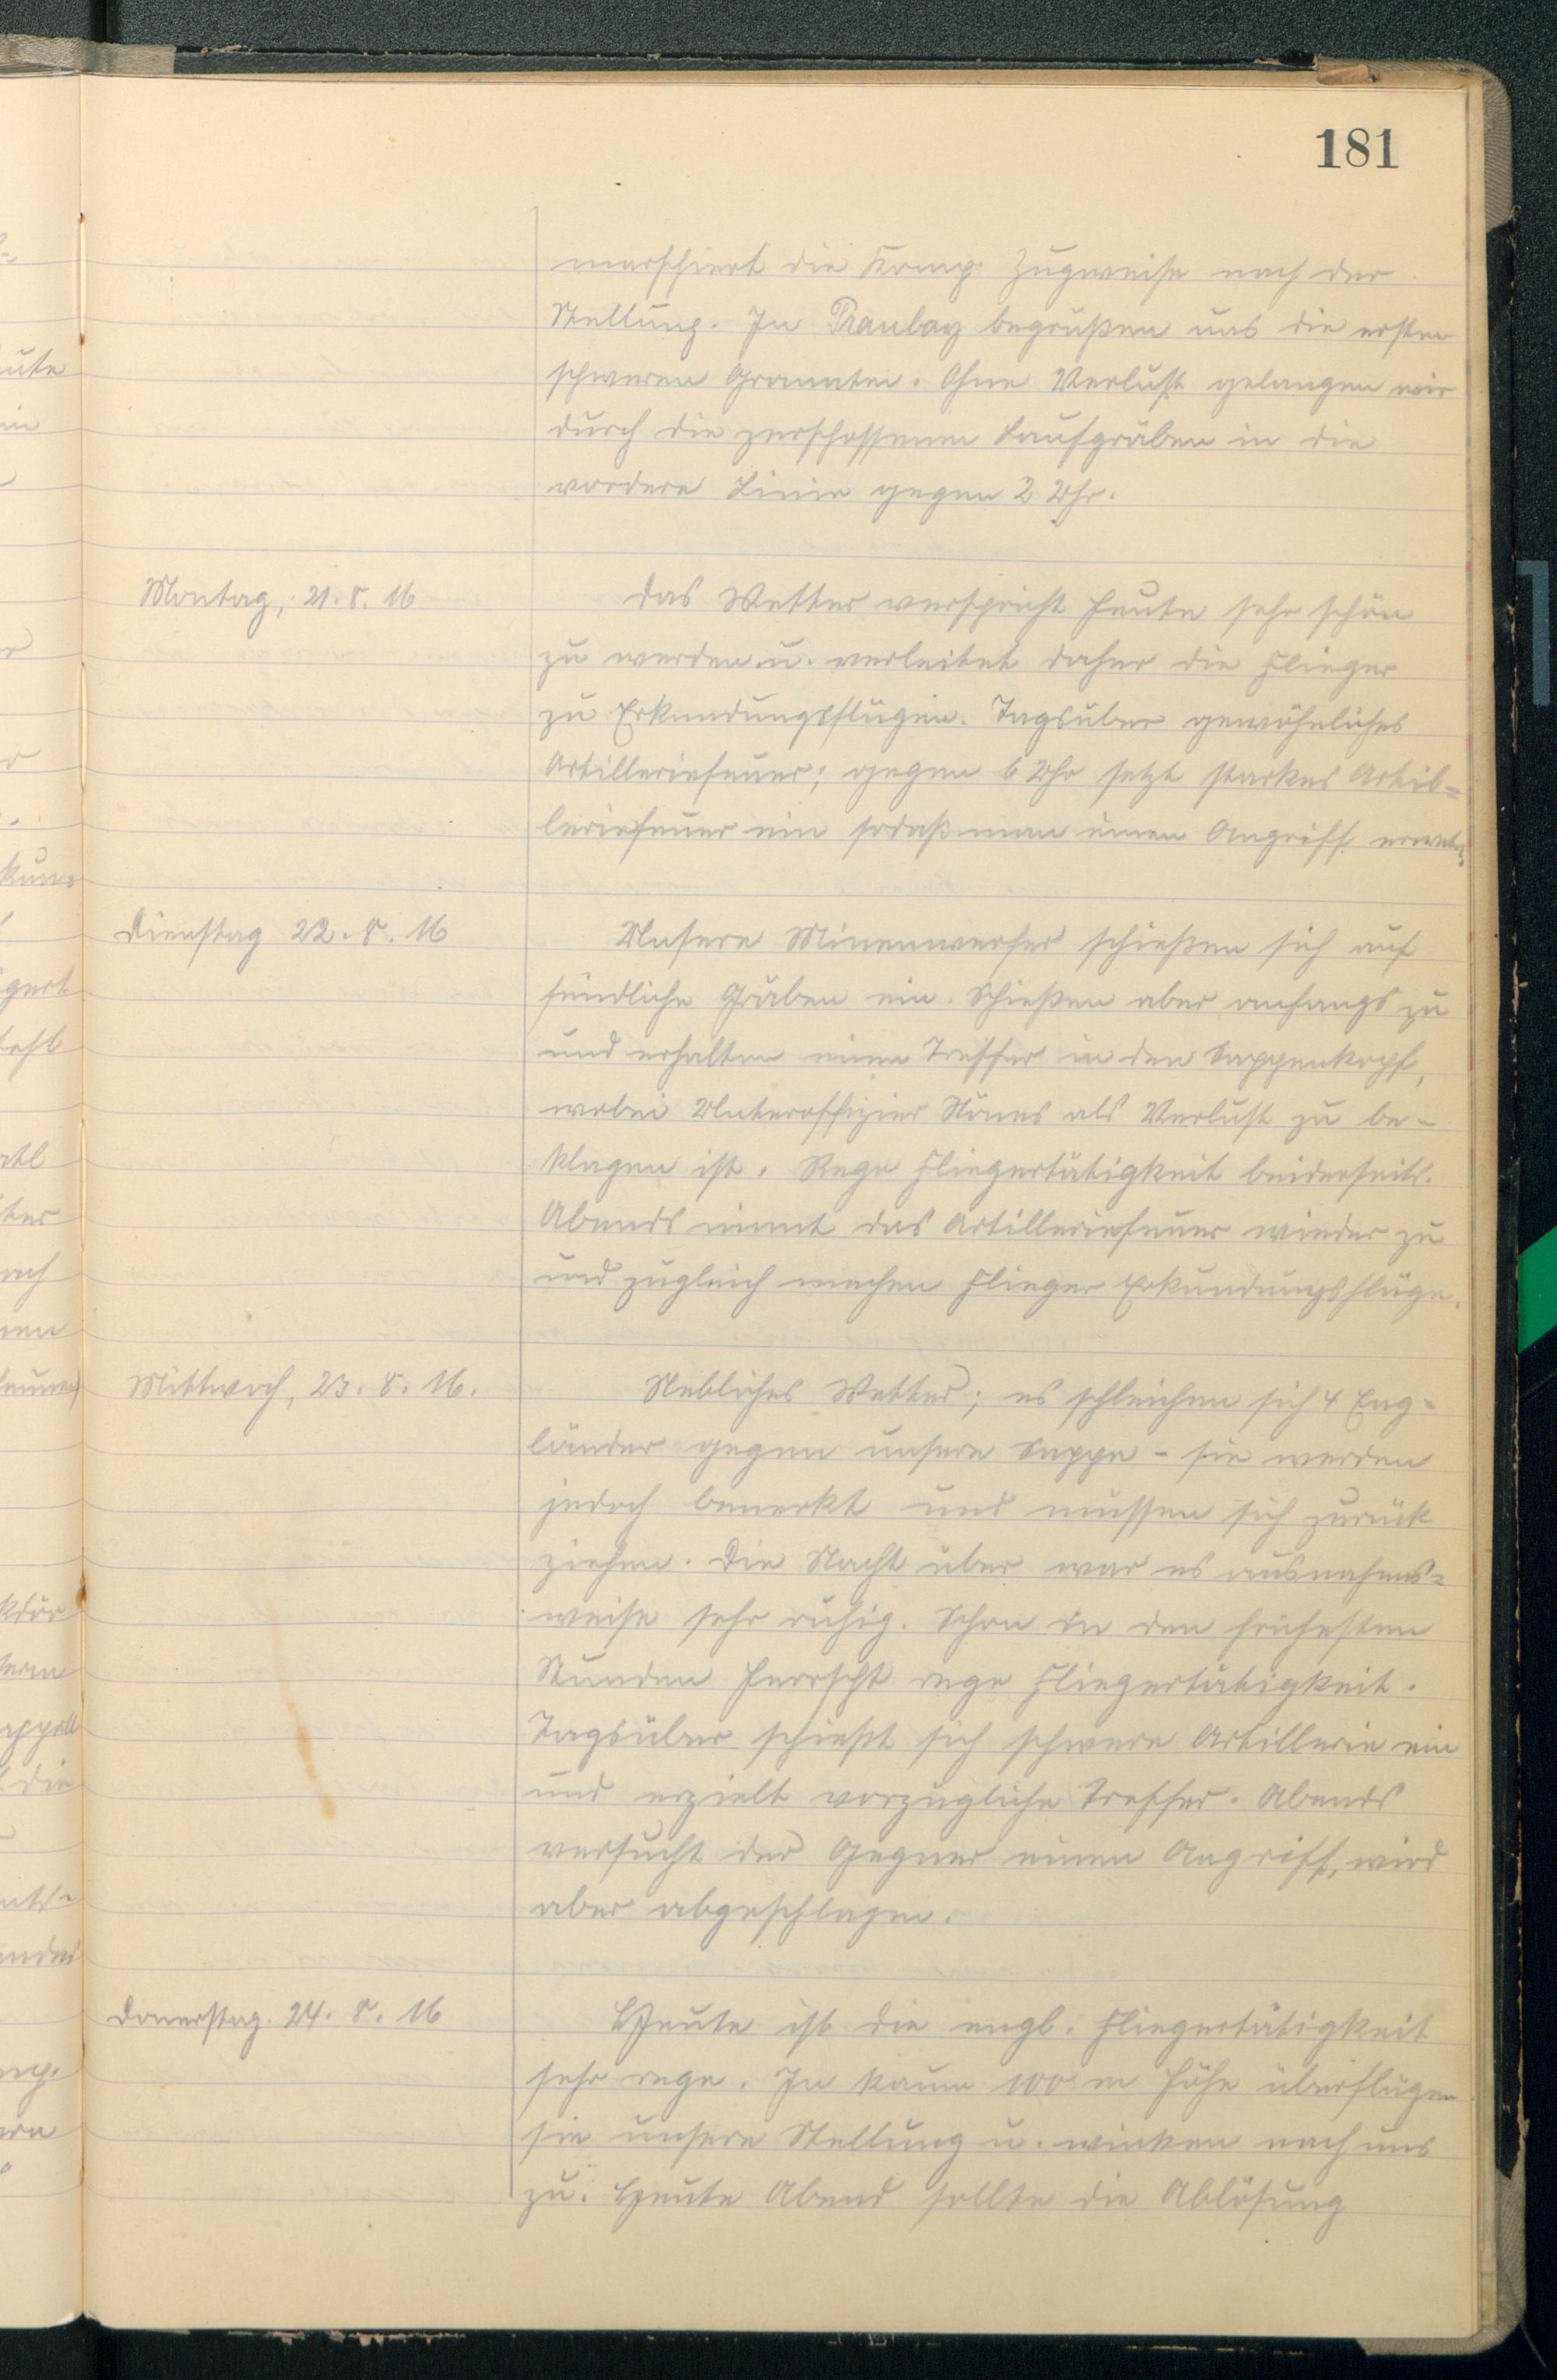 181
marschiert die Komp. zugweise nach der
Stellung. In begrüßen uns die ersten
schweren Granaten. Ohne Verlust gelangen wir
durch die zerschossenen Laufgräben in die
vordere Linie gegen 2 Uhr.
Montag, 21. 8. 16
Das Wetter verspricht heute sehr schön
zu werden u. verleitet daher die Flieger
zu Erkundungsflügen. Tagsüber gewöhnliches
Artilleriefeuer; gegen 6 Uhr setzt starkes Artil-
leriefeuer ein sodaß man einen Angriff
Dienstag 22. 8. 16
Unsere Minenwerfer schießen sich auf
feindliche Gräben ein. Schießen aber anfangs zu
und erhalten einen Treffer in den Sappenkopf,
wobei Unteroffizier als Verlust zu be-
klagen ist. Rege Fliegertätigkeit beiderseits.
Abends nimt das Artilleriefeuer wieder zu
und zugleich machen Flieger Erkundungsflüge.
Mittwoch, 23. 8. 16.
Nebliches Wetter; es schleichen sich 4 Eng-
länder gegen unsere Sappe - sie werden
jedoch bemerkt und müssen sich zurück
ziehen. Die Nacht über war es ausnahms-
weise sehr ruhig. Schon in den frühesten
Stunden herrscht rege Fliegertätigkeit.
Tagsüber schießt sich schwere Artillerie ein
und erzielt vorzügliche Treffer. Abends
versucht der Gegner einen Angriff, wird
aber abgeschlagen.
Donerstag. 24. 8. 16
Heute ist die engl. Fliegertätigkeit
sehr rege. In kaum 100 m Höhe überflügen
sie unsere Stellung u. winken nach uns
zu. Heute Abend sollte die Ablösung